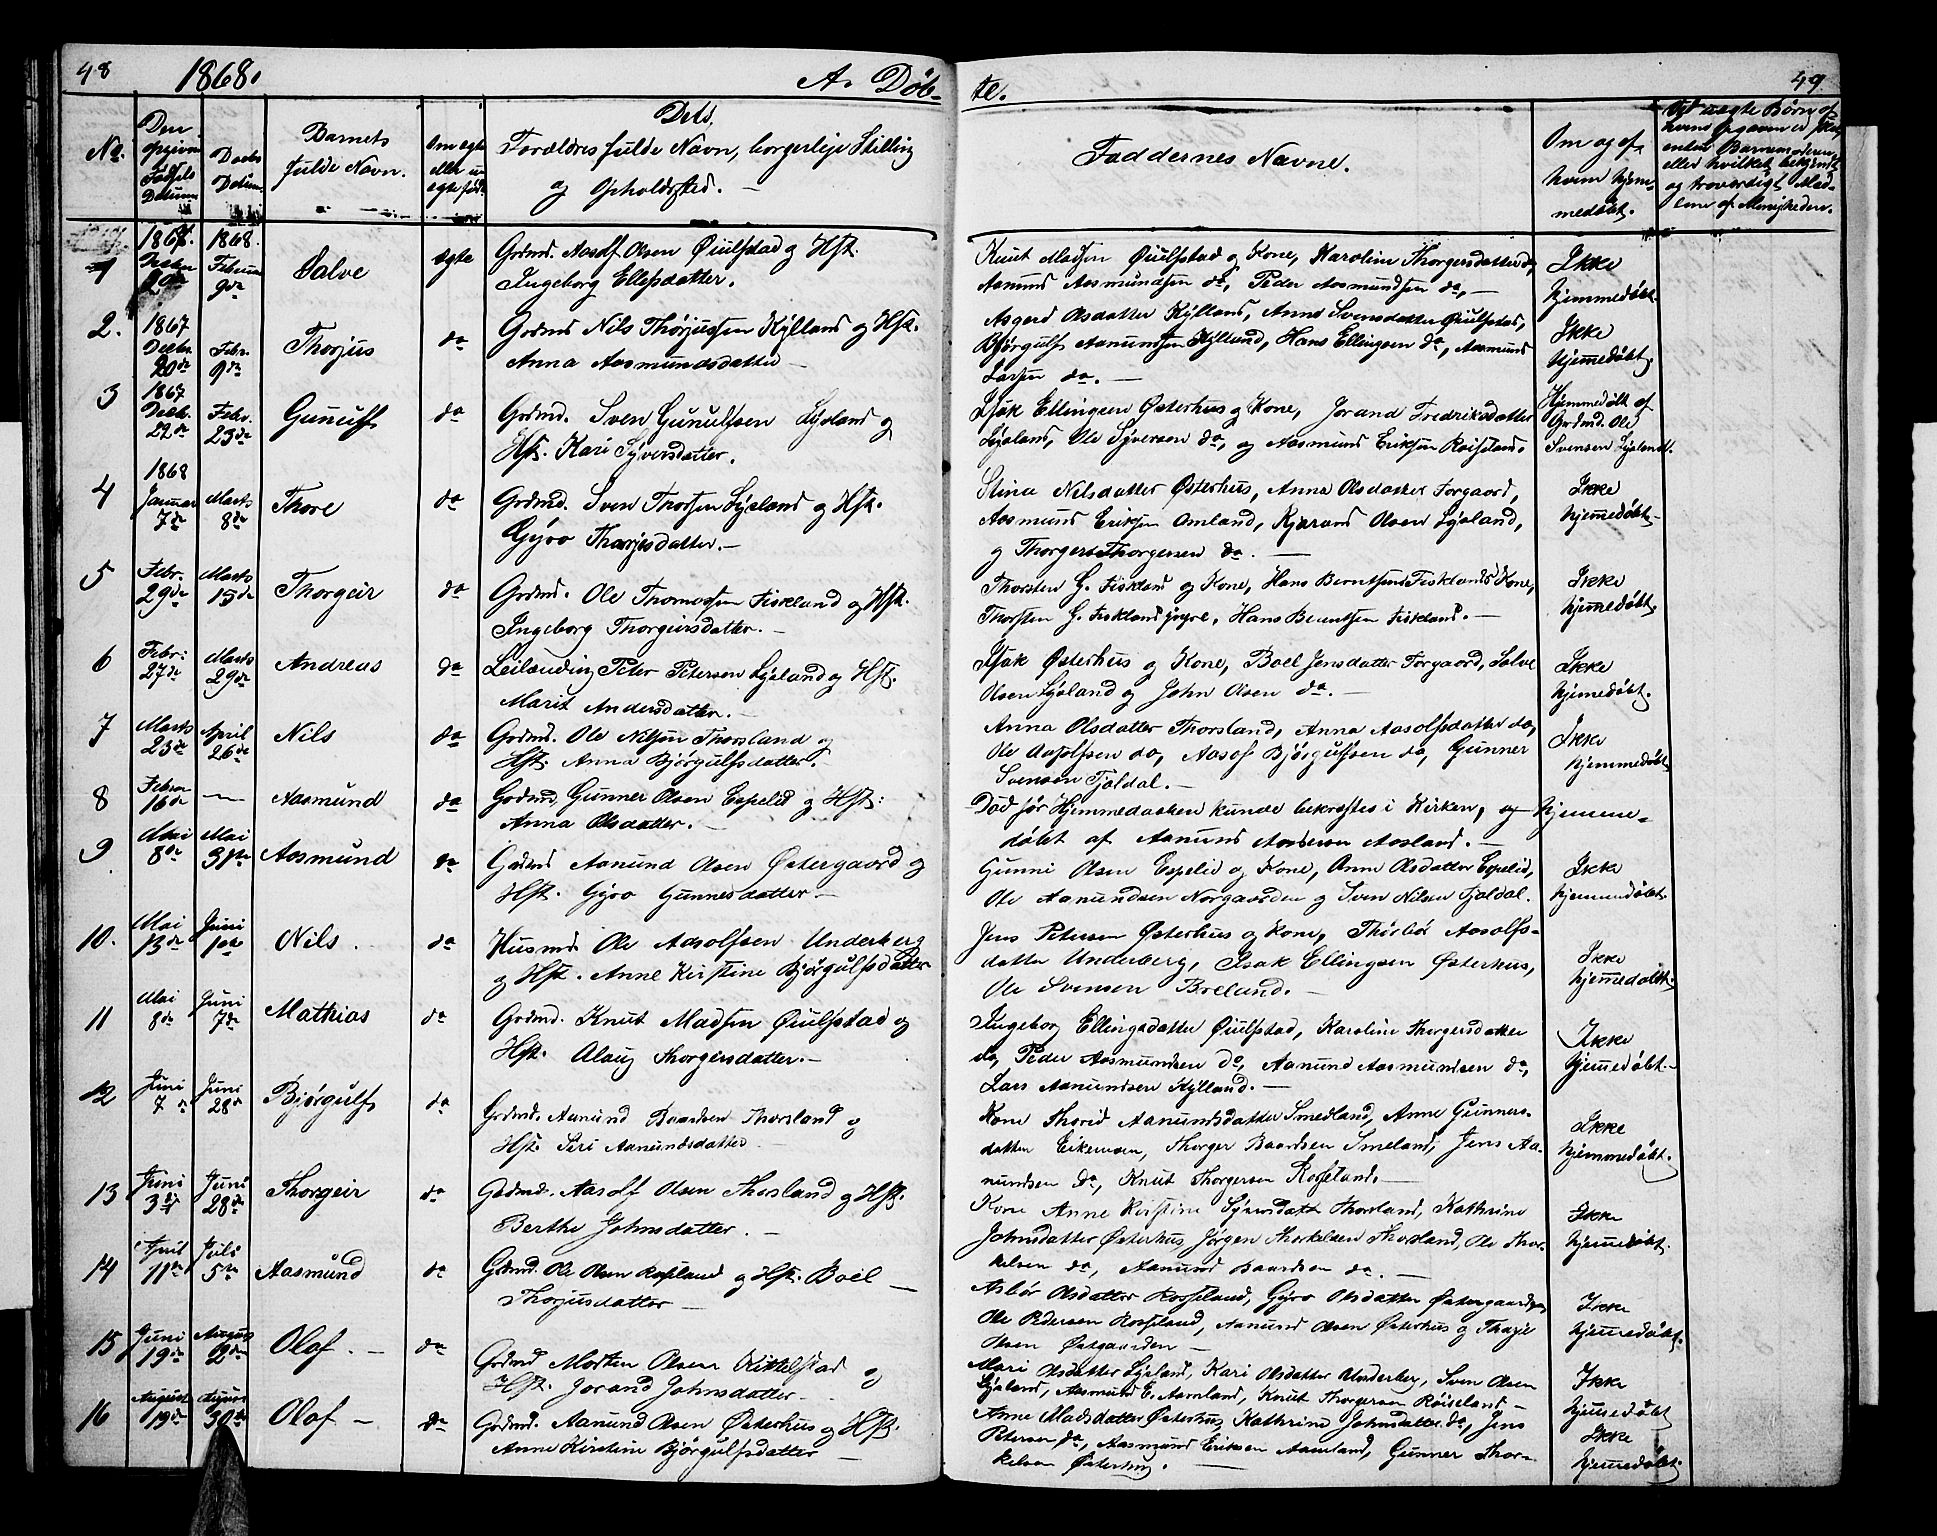 48 1868. A. Døb-
te. 49
No.
Den opgivne Fødsels Datum
Daabs Datum
Barnets fulde Navn.
Om ægte eller uægte født
Dets
Forældres fulde Navn, borgerlige Stilling
og Opholdssted. —
Faddernes Navne.
Om og af
hvem hjem-
medøbt.
1 1867. 1868. Februar 9de Salve ægte Grdmd. Aasolf Olsen Øiulfstad og Hst.
Ingeborg Ellefsdatter.
Knut Madsen Øiulfstad og Kone, Karoline Thorgersdatter do,
Aanund Aasmundsen do, Peder Aasmundsen do, —
Ikke
hjemmedøbt.
2. 1867 Decbr. 20de Febr. 9de Thorjus do Grdmd Nils Thorjussen Kylland og Hst.
Anna Aasmundsdatter —
Asgerd Olsdatter Kylland, Anne Svensdatter Øiulfstad,
Bjørgulf Aanundsen Kylland, Hans Ellingsen do, Aasmund
Larsen do. —
Ikke
hjemedøbt.
3 1867 Decbr. 22de Febr. 23de Gunulf do Grdmd. Sven Gunulfsen Lyseland og
Hst. Kari Syversdatter.
Isak Ellingsen Østerhus og Kone, Jorand Fredriksdatter
Lyseland, Ole Syversen do, og Aasmund Eriksen Roiseland.
Hjemmedøbt af
Grdmd. Ole
Svensen Lyseland.
4 1868 Januar 7de Marts 8de Thore do Grdmd. Sven Thorsen Lyseland og Hst.
Gyro Thorjusdatter. —
Stina Nilsdatter Østerhus, Anna Olsdatter Torgaard,
Aasmund Eriksen Omland, Kjærand Olsen Lyseland,
og Thorgers Thorgersen do. —
Ikke
hjemedøbt
5 Febr. 29de Marts 15de Thorgeir do Grdmd. Ole Thomassen Fiskland og Hst.
Ingeborg Thorgiersdatter. —
Thorsten G. Fiskland og Kone, Hans Berntsens Fisklands Kone,
Thorsten G. Fiskland yngre, Hans Berntsen Fiskland. —
Ikke
hjemedøbt.
6 Febr. 27de Marts 29de Andreas do Leilænding Peter Petersen Lyseland og Hst.
Marit Andersdatter. —
Isak Østerhus og Kone, Boel Jensdatter Torgaard, Salve
Olsen Lyseland og John Olsen do. —
Ikke
hjemedøbt.
7 Marts 23de April 26de Nils do Grdmd. Ole Nilsen Thorsland og
Hst. Anna Bjørgulfsdatter.
Anna Olsdatter Thorsland, Anna Aasolfsdatter do,
Ole Aasolfsen do, Aasof Bjørgulfsen do, Gunner
Svensen Tjaldal. —
Ikke
hjemmedøbt
8 Februar 16de — Aasmund do Grdmd, Gunner Olsen Espelid og Hst:
Anna Olsdatter. —
Død før Hjemmedaaben kunde bekræftes i Kirken, og hjemme-
døbt af Aanund Andersen Aasland. —
9 Mai 8de Mai 31te Aasmund do Grdmd Aanund Olsen Østergaard og
Hst. Gyro Gunnersdatter —
Gunni Olsen Espelid og Kone, Anne Olsdatter Espelid,
Ole Aanundsen Norgaarden og Sven Nilsen Tjaldal.
Ikke
hjemmedøbt.
10. Mai 13de Juni 1ste Nils do Husmd Ole Aasolfsen Underberg
og Hst. Anne Kirstine Bjørgulfsdatter
Jens Petersen Østerhus og Kone, Thorbør Aasolfs-
datter Underberg, Isak Ellingsen Østerhus,
Ole Svensen Breland. —
Ikke
hjemedøbt.
11 Mai 8de Juni 7de Mathias do Grdmd. Knut Madsen Øiulfstad og
Hst. Alaug Thorgersdatter. —
Ingeborg Ellingsdatter Øiulfstad, Karoline Thorgersdatter
do, Peder Aasmundsen do, Aanund Aasmundsen do,
Lars Aanundsen Kylland. —
Ikke
hjemedøbt. —
12 Juni 7de Juni 28de Bjørgulf do Grdmd. Aanund Baardsen Thorsland og
Hst. Siri Aanundsdatter —
Kone Thorid Aanundsdatter Smedland, Anne Gunners-
datter Eikemoen, Thorger Baardsen Smeland, Jens Aa-
nundsen do, Knut Thorgersen Roseland. —
Ikke
hjemmedøbt.
13 Juni 3die Juni 28de Thorgeir do Grdmd. Aasolf Olsen Thorsland og Hst.
Berthe Johnsdatter. —
Kone Anne Kirstine Syversdatt Thorsland, Kathrine
Johnsdatter Østerhus, Jørgen Thorkelsen Thorsland, Ole Thor-
kelsen do, Aanund Baardsen do. —
Ikke
hjemedøbt.
14 April 11te Juli 5te Aasmund do Grdmd. Ole Olsen Rosseland og Hst. Boel —
Thorjusdatter —
Asbør Olsdatter Rosseland, Gyro Olsdatter Østergaarden
Ole Pedersen Rosseland, Aanund Olsen Østerhus og Thorje
Olsen Østgaarden —
Ikke
hjemedøbt.
15 Juni 19de August 2den Olaf. — do Grdmd Morten Olsen Kittelstad og
Hst. Jorand Johnsdatter —
Mari Olsdatter Lyseland, Kari Olsdatter Underberg, Sven Olsen
Lyseland, Aasmund E. Aamland, Knut Thorgersen Røiseland —
Ikke
hjemedøbt
16 August 19de August 30te Olaf — do Grdmd. Aanund Olsen Østerhus og Hst.
Anne Kirstine Bjørgulfsdatter —
Anne Madsdatter Østerhus, Kathrine Johnsdatter do, Jens
Petersen do, Aasmund Eriksen Aamland, Gunner Thor-
kelsen Østerhus. —
Ikke
hjemedøbt.